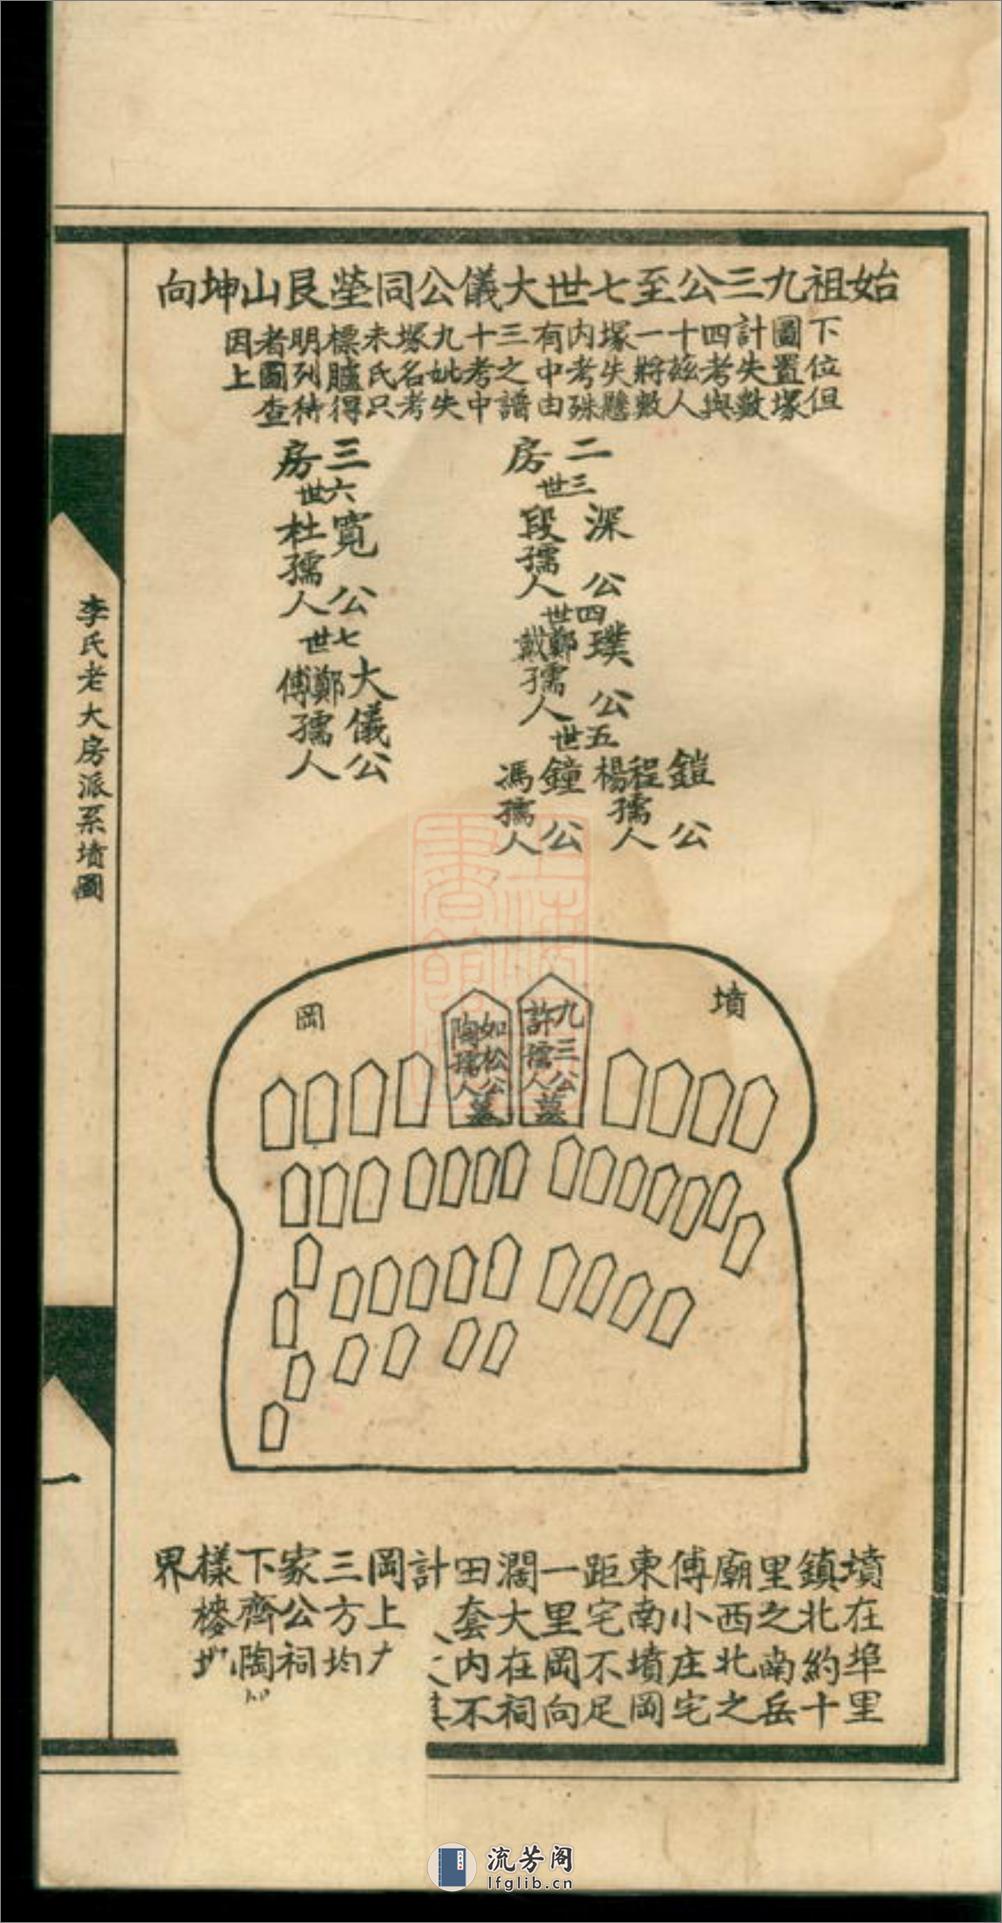 始祖九三公至七世大儀公同塋艮山坤向
下位但
圖置塚
計失數
四考與
十茲人
一將數
塚失懸
內考殊
有中由
三之譜
十考中
九妣失
塚名考
未氏只
標臚得
明列待
者圖查
因上
二房
三世
深公
段孺人
四世
璞公
鄭戴孺人
五世
鎧公
程楊孺人
鐘公
馮孺人
三房
六世
寬公
杜孺人
七世
大儀公
鄭傅孺人
李氏老大房派系墳圖
墳
岡
九三公許孺人墓
如松公陶孺人墓
墳在埠里
鎮北約十
里之南岳
廟西北之
傅小庄宅
東南墳岡
距宅不足
一里岡向
濶大在祠
田套內不
計
岡上
三方均
家公祠
下齊陶
樣楼
界
一
流芳阁
lfglib.cn